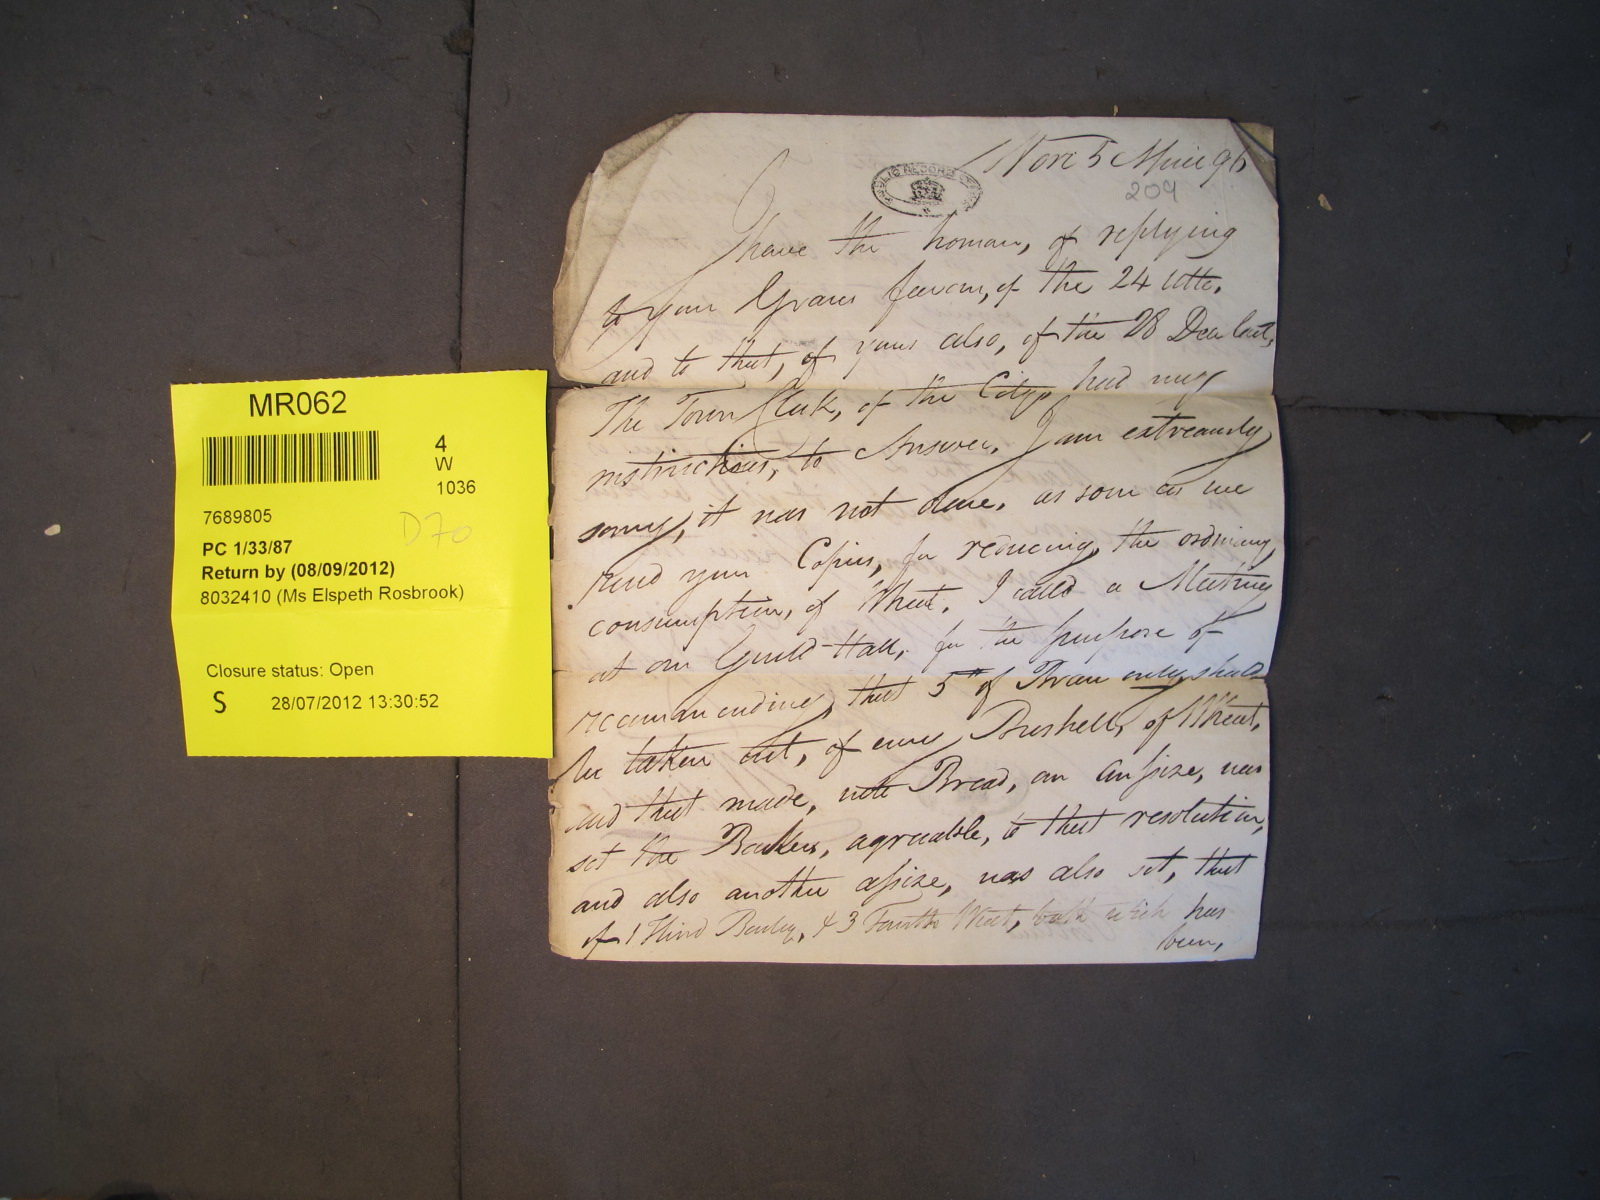 MR062
4
W
1036
7689805
D70
PC 1/33/87
Return by (08/09/2012)
8032410 (Ms Elspeth Rosbrook)
Closure status: Open
S 28/07/2012 13:30:52
5 96
PUBLIC RECORD OFFICE
209
I have the honour, of replying
to your Graces favour, of the 24 Ulto,
and to that, of yours also, of the 28 Decr last,
The Town Clerk, of the City, had my
instructions, to Answer, I am extreamly
sorry, it was not done, as soon as we
your Copies, for reducing, the ordinary,
consumption, of Wheat, I called a Meeting
at our Guild-Hall, for the purpose of
recommending, that 5 of Bran only, should
be taken out, of every Bushell, of Wheat,
and that made, into Bread, an assize, was
set the Bakers, agreable, to that resolution,
and also another assize, was also set, that
of 1 Third Barley, & 3 Fourths Wheat, both which has
been,